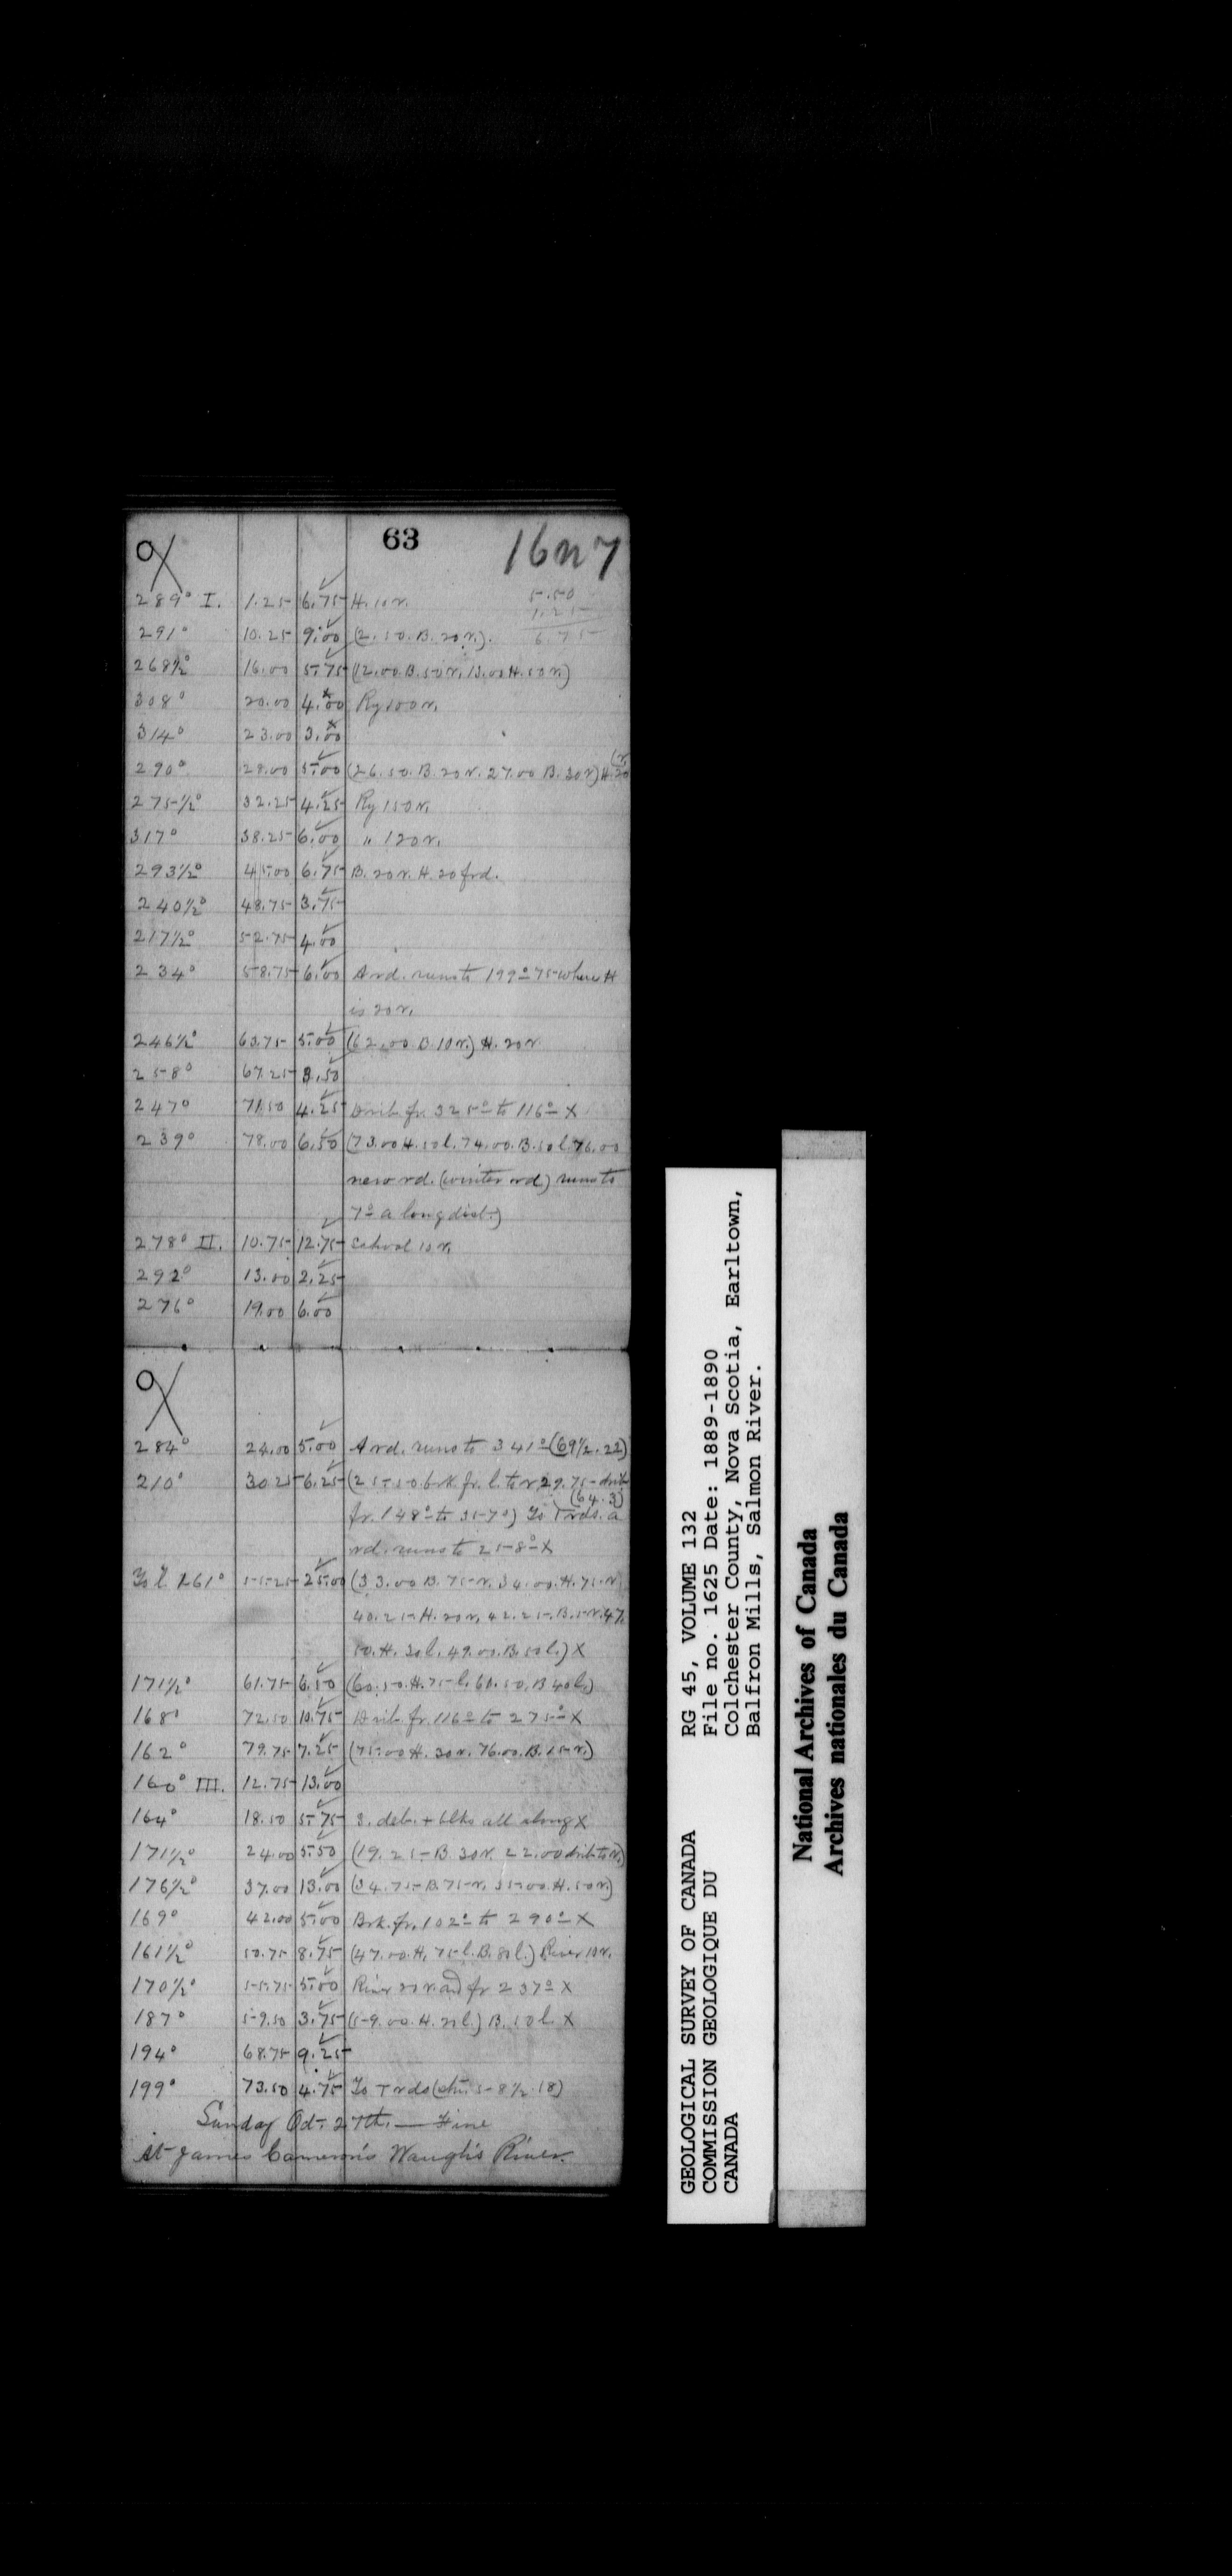 63
16n7
289° I. 1.25 6.75 H. 10 r. 5.50
1.25
291° 10.25 9.00 (2.50. B. 20 r.). 6.75
268½° 16.00 5.75 (12.00. B. 50 r. 13.00 H. 50 r.)
308° 20.00 4.00 Ry 100 r.
314° 23.00 3.00
290° 28.00 5.00 (26.50. B. 20 r. 27.00 B. 30 r) H. 20 (r.
275½° 32.25 4.25 Ry 150 r.
317° 38.25 6.00 " 120 r.
293½° 45.00 6.75 B. 20 r. H. 20 frd.
240½° 48.75 3.75
217½° 52.75 4.00
234° 58.75 6.00 A rd. runs to 199° 75 where H
is 20 r.
246½° 63.75 5.00 (62.00 B. 10 r.) H. 20 r.
258° 67.25 3.50
247° 71.50 4.25 Drib. fr. 325° to 116° X
239° 78.00 6.50 (73.00 H. 50 l. 74.00. B. 50 l. 76.00
new rd. (winter rd) runs to
7° a long dist.)
278° II. 10.75 12.75 School 10 r.
292° 13.00 2.25
276° 19.00 6.00
284° 24.00 5.00 A rd. runs to 341° (69½.22)
210° 30.25 6.25 (25.50 brk. fr. l. to r. 29.75 drib
(64.3)
fr. 148° to 357°) To T rds. a
rd. runs to 258° X
To l 261° 55.25 25.00 (33.00 B. 75 r. 34.00. H. 75 r.
40.25 H. 20 r. 42.25. B. 5 r. 47.
50. H. 30 l. 49.00. B. 50 l.) X
171½° 61.75 6.50 (60.50. H. 75 l. 61.50. B 40 l.)
168° 72.50 10.75 Drib. fr. 116° to 275° X
162° 79.75 7.25 (75.00 H. 30 r. 76.00. B. 15 r.)
160° III. 12.75 13.00
164° 18.50 5.75 S. deb. + blks all along X
171½° 24.00 5.50 (19.25 B. 30 r. 22.00 drib to r.)
176½° 37.00 13.00 (34.75 B. 75 r. 35.00. H. 50 r.)
169° 42.00 5.00 Brk. fr. 102° to 290° X
161½° 50.75 8.75 (47.00. H. 75 l. B. 80 l.) River 10 r.
170½° 55.75 5.00 River 20 r. and fr 237° X
187° 59.50 3.75 (59.00. H. 20 l.) B. 50 l. X
194° 68.75 9.25
199° 73.50 4.75 To T rds (stn. 58½.18)
Sunday Oct. 27th. — Fine
At James Cameron's Waugh's River.
GEOLOGICAL SURVEY OF CANADA RG 45, VOLUME 132
COMMISSION GEOLOGIQUE DU File no. 1625 Date: 1889-1890
CANADA Colchester County, Nova Scotia, Earltown,
Balfron Mills, Salmon River.
National Archives of Canada
Archives nationales du Canada